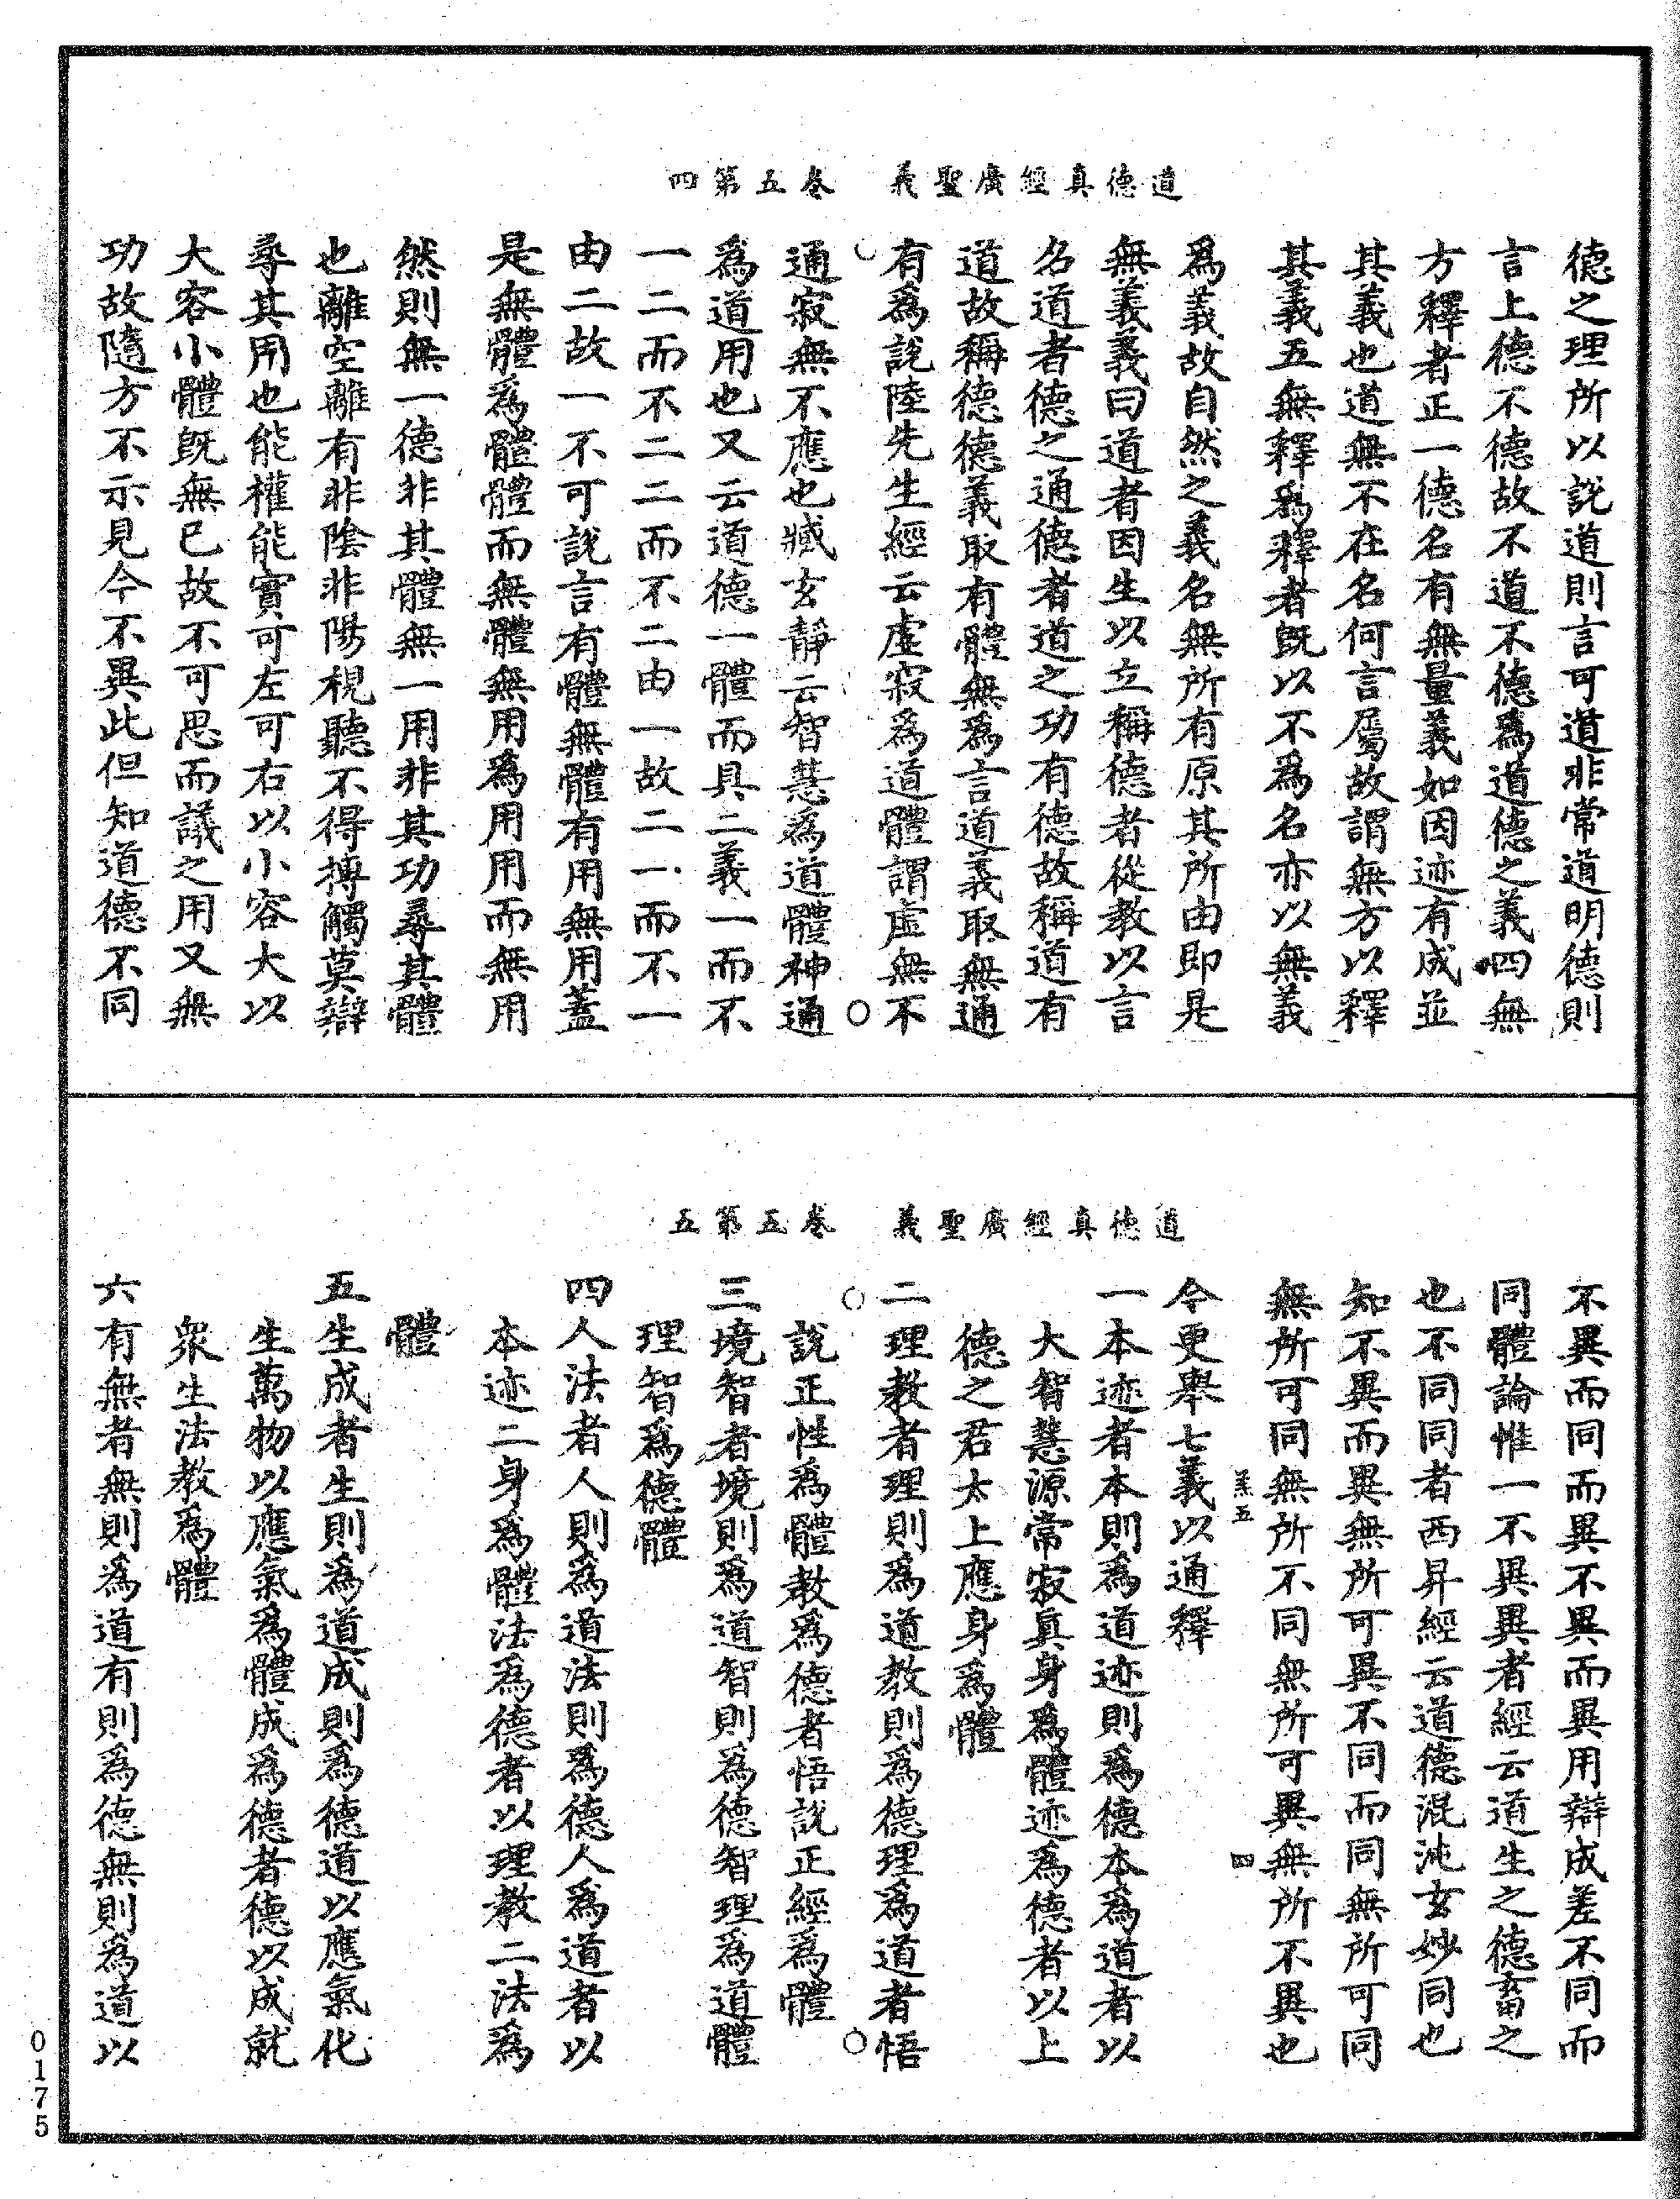 道德真經廣聖義　卷五第四
德之理所以說道則言可道非常道明德則
言上德不德故不道不德為道德之義四無
方釋者正一德名有無量義如因迹有成並
其義也道無不在名何言屬故謂無方以釋
其義五無釋為釋者既以不為名亦以無義
為義故自然之義名無所有原其所由即是
無義義曰道者因生以立稱德者從教以言
名道者德之通德者道之功有德故稱道有
道故稱德德義取有體無為言道義取無通
有為說陸先生經云虛寂為道體謂虛無不
通寂無不應也臧玄靜云智慧為道體神通
為道用也又云道德一體而具二義一而不
一二而不二二而不二由一故二一而不一
由二故一不可說言有體無體有用無用蓋
是無體為體體而無體無用為用用而無用
然則無一德非其體無一用非其功尋其體
也離空離有非陰非陽視聽不得搏觸莫辯
尋其用也能權能實可左可右以小容大以
大容小體既無已故不可思而議之用又無
功故隨方不示見今不異此但知道德不同
道德真經廣聖義　卷五第五
不異而同而異不異而異用辯成差不同而
同體論惟一不異異者經云道生之德畜之
也不同同者西昇經云道德混沌玄妙同也
知不異而異無所可異不同而同無所可同
無所可同無所不同無所可異無所不異也
羔五　四
今更舉七義以通釋
一本迹者本則為道迹則為德本為道者以
大智慧源常寂真身為體迹為德者以上
德之君太上應身為體
二理教者理則為道教則為德理為道者悟
說正性為體教為德者悟說正經為體
三境智者境則為道智則為德智理為道體
理智為德體
四人法者人則為道法則為德人為道者以
本迹二身為體法為德者以理教二法為
體
五生成者生則為道成則為德道以應氣化
生萬物以應氣為體成為德者德以成就
眾生法教為體
六有無者無則為道有則為德無則為道以
0175